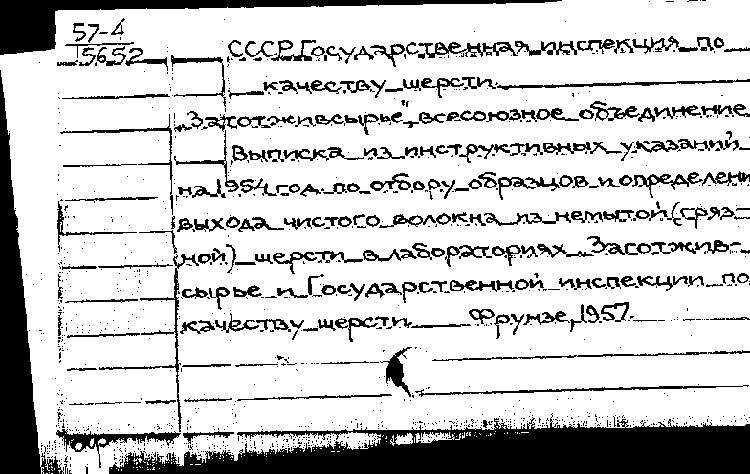 57-4
5652
СССР. Государственная инспекция по
качеству шерсти.
„Заготживсырье", всесоюзное объединение
Выписка из инструктивных указаний
на 1954 год по отбору образцов и определени
выхода чистого волокна из немытой (гряз-
ной) шерсти в лабораториях Заготжив-
сырье и Государственной инспекции по
качеству шерсти. Фрунзе, 1957.